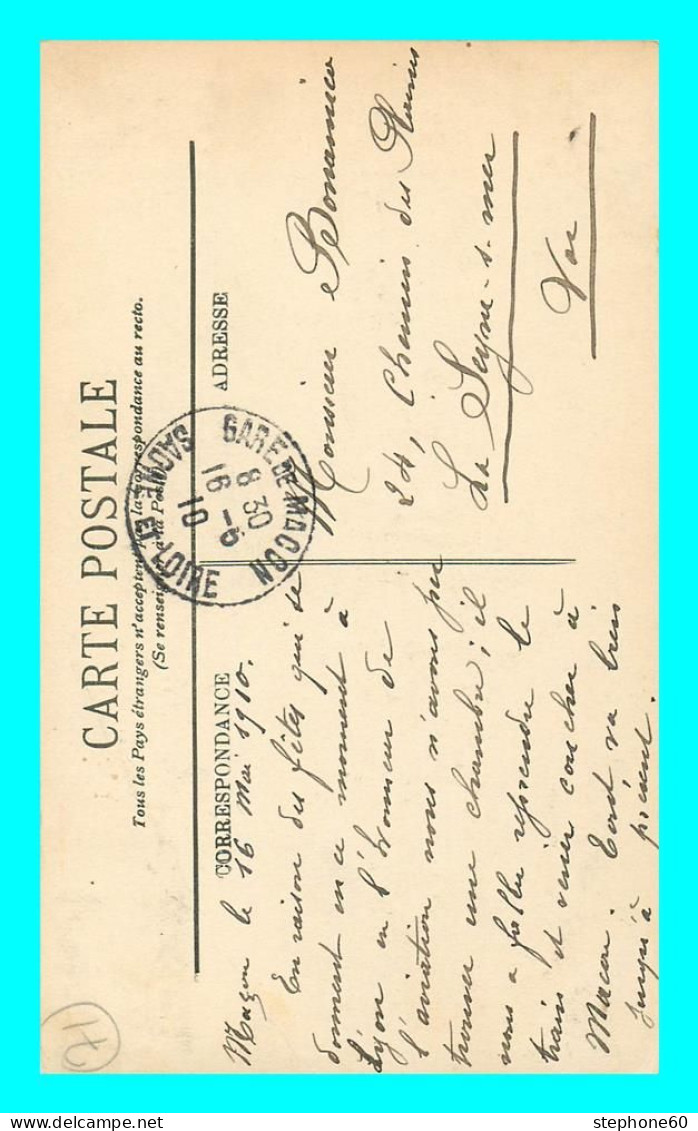 CARTE POSTALE
Tous les Pays étrangers n'acceptent pas la correspondance au recto.
(Se renseigner à la Poste)
CORRESPONDANCE
ADRESSE
GARE DE MACON
8 30
16 - 5
10
SAONE ET LOIRE
Maçon le 16 Mai 1910.
En raison des fêtes qui se
donnent en ce moment à
Lyon en l'honneur de
l'aviation nous n'avons pu
trouver une chambre; il
nous a fallu reprendre le
train et venir coucher à
Macon. Tout va bien
jusqu'à présent.
Monsieur Bonamico
24, Chemin des Plaines
La Seyne-s-mer
Var
stephone60